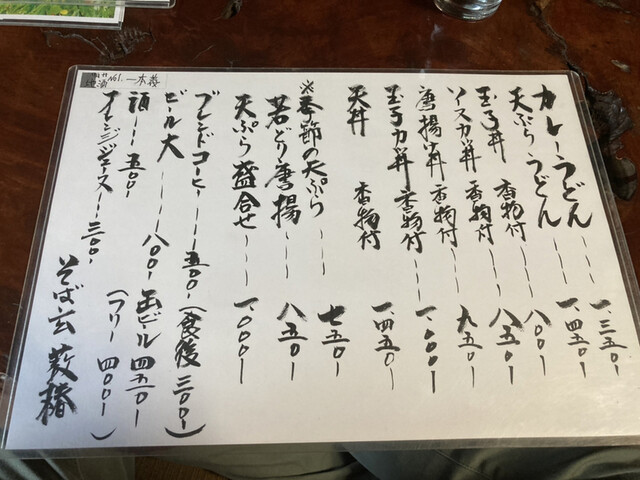 カレーうどん ーーー 一、三五〇ー
天ぷらうどん ーーー 一、四五〇ー
玉子丼 香物付 ーーー 八〇〇ー
ソースカツ丼 香物付 ーーー 八五〇ー
唐揚げ丼 香物付 ーーー 九五〇ー
玉子カツ丼 香物付 ーーー 一、〇〇〇ー
天丼 香物付 一、四五〇ー
※季節の天ぷら ーーー 七五〇ー
若どり唐揚 ーーー 八五〇ー
天ぷら盛合せ ーーー 一、〇〇〇ー
ブレンドコーヒー ーーー 五〇〇ー(食後 三〇〇ー)
ビール大 ーーー 八〇〇ー 缶ビール 四五〇ー
(フリー 四〇〇ー)
酒 ーー 五〇〇ー
オレンジジュース ーー 三〇〇ー
No1. 一本義
そば玄 薮椿